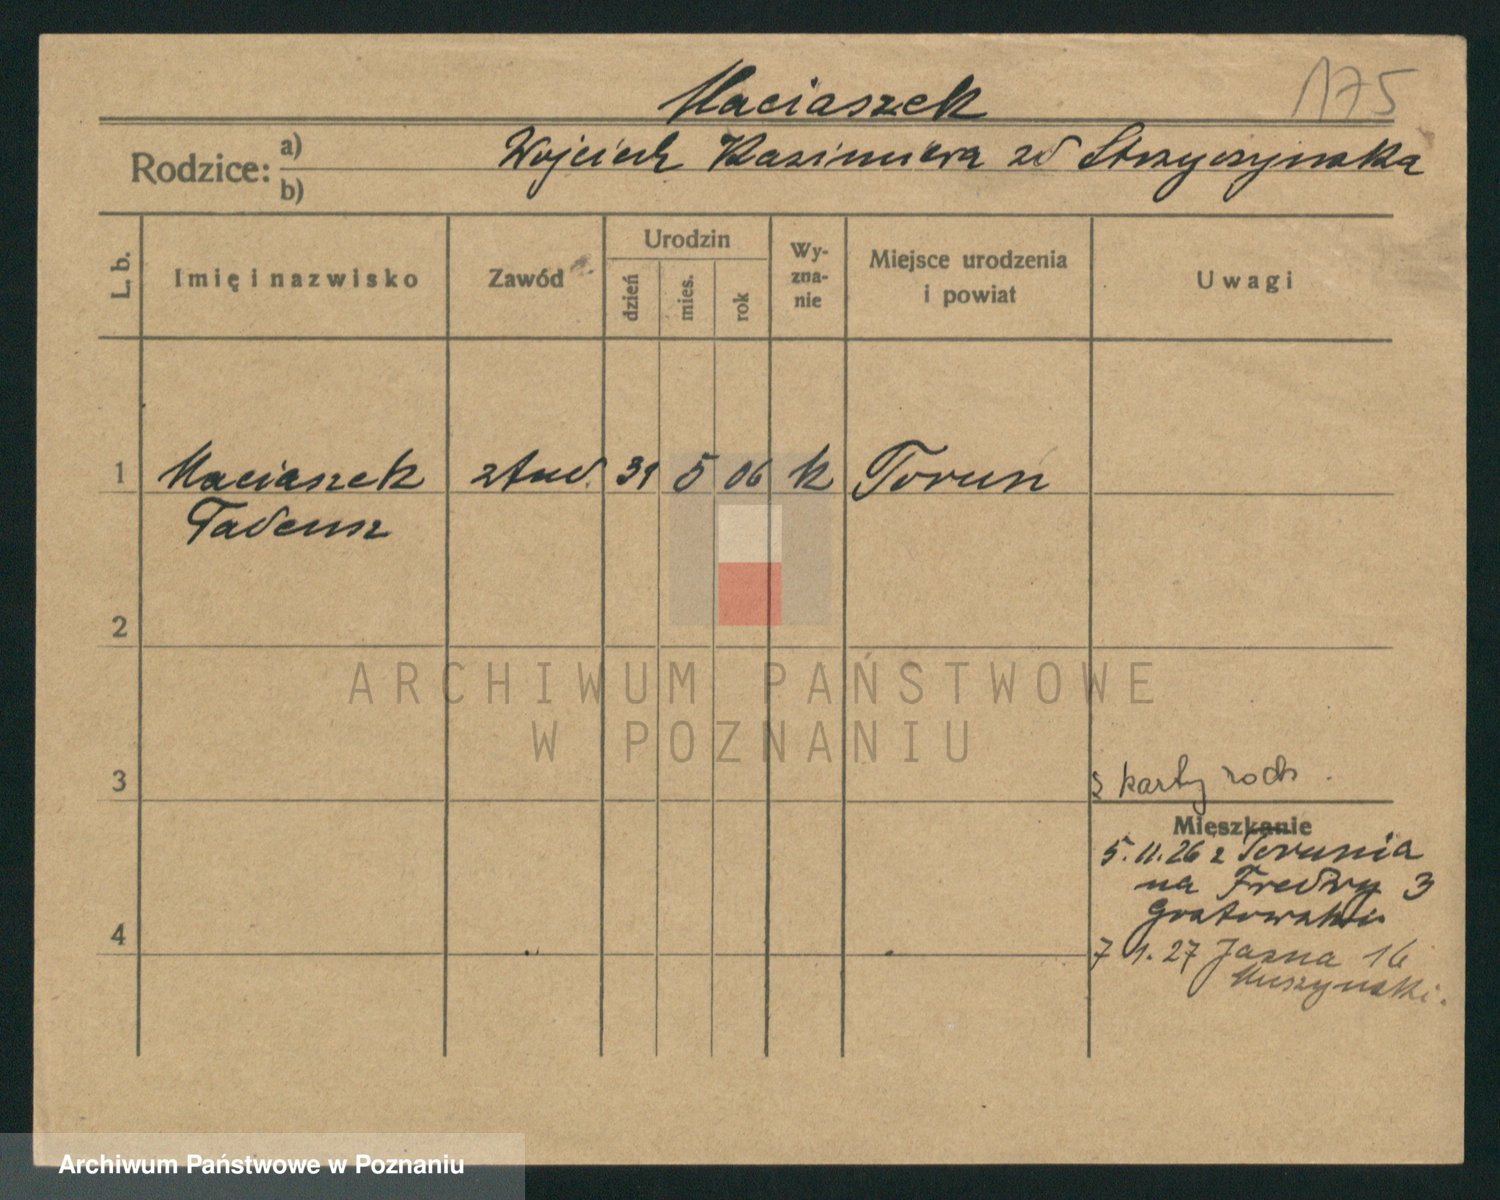 175
Maciaszek
Rodzice: a) Wojciech Kazimiera zd Strzyżynska
b)
L. b. Imię i nazwisko Zawód Urodzin dzień mies. rok Wy-zna-nie Miejsce urodzenia i powiat Uwagi
1 Maciaszek stud. 31 5 06 k Toruń
Tadeusz
2
ARCHIWUM PAŃSTWOWE
W POZNANIU
3 z karty rodz.
Mieszkanie
5.11.26 z Torunia
na Fredry 3
4
7 1. 27 Jasna 16
Muszynski.
Archiwum Państwowe w Poznaniu